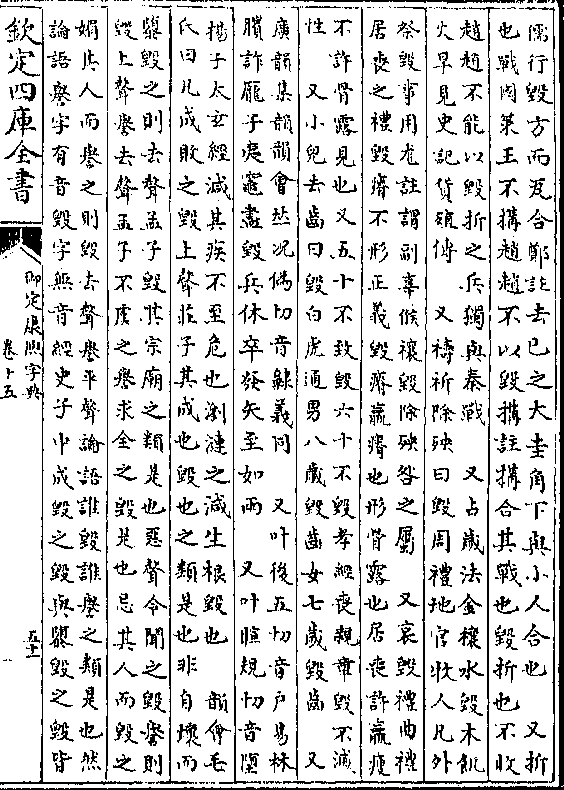 儒行毀方而瓦合鄭註去己之大圭角下與小人合也　又折
也戰國策王不搆趙趙不以毀搆註搆合其戰也毀折也不收
趙趙不能以毀折之兵獨與秦戰　又占歲法金穰水毀木飢
火旱見史記貨殖傳　又禱祈除殃曰毀周禮地官牧人凡外
祭毀事用尨註謂副辜候禳毀除殃咎之屬　又哀毀禮曲禮
居喪之禮毀瘠不形正義毀瘠羸瘠也形骨露也居喪許羸瘦
不許骨露見也又五十不致毀六十不毀孝經喪親章毀不滅
性　又小兒去齒曰毀白虎通男八歲毀齒女七歲毀齒　又
廣韻集韻韻會𠀤況僞切音䌥義同　又叶後五切音戸易林
臏詐龐子夷竈盡毀兵休卒發矢至如雨　又叶暄規切音墮
楊子太玄經減其疾不至危也瀏漣之減生根毀也　韻會毛
氏曰凡成敗之毀上聲莊子其成也毀也之類是也非自壞而
隳毀之則去聲孟子毀其宗廟之類是也惡聲令聞之毀譽則
毀上聲譽去聲孟子不虞之譽求全之毀是也忌其人而毀之
媚其人而譽之則毀去聲譽平聲論語誰毀誰譽之類是也然
論語譽字有音毀字無音經史子中成毀之毀與隳毀之毀皆
欽定四庫全書
御定康熙字典
卷十五
五十一